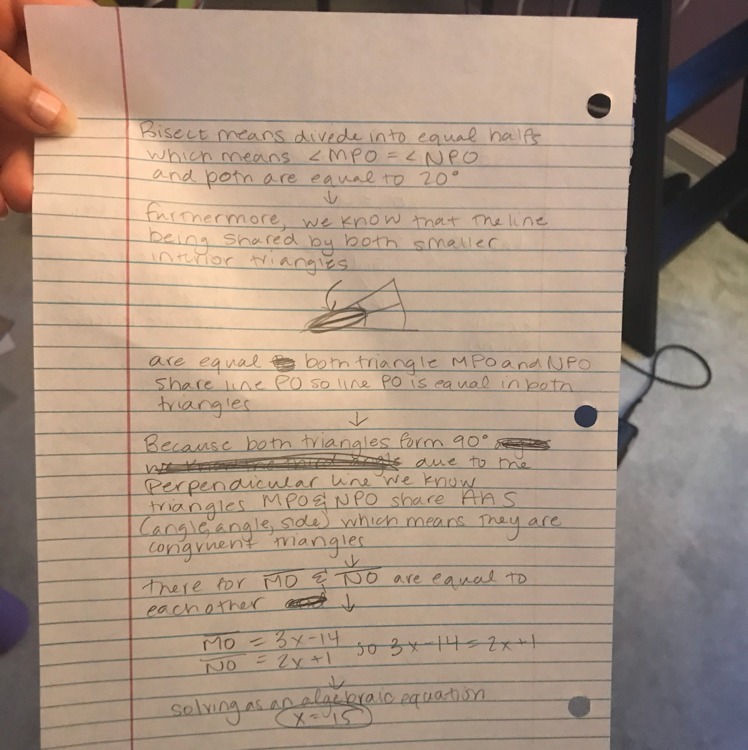 Bisect means divede into equal halfs
which means <MPO = <NPO
and both are equal to 20°
↓
furthermore, we know that the line
being shared by both smaller
interior triangles
are equal both triangle MPO and NPO
share line PO so line PO is equal in both
triangles
↓
Because both triangles form 90°
due to the
perpendicular line we know
triangles MPO & NPO share AAS
(angle, angle, side) which means they are
congruent triangles
↓
there for MO & NO are equal to
eachother ↓
MO = 3x-14 so 3x-14=2x+1
NO = 2x+1
↓
solving as an algebraic equation
x=15